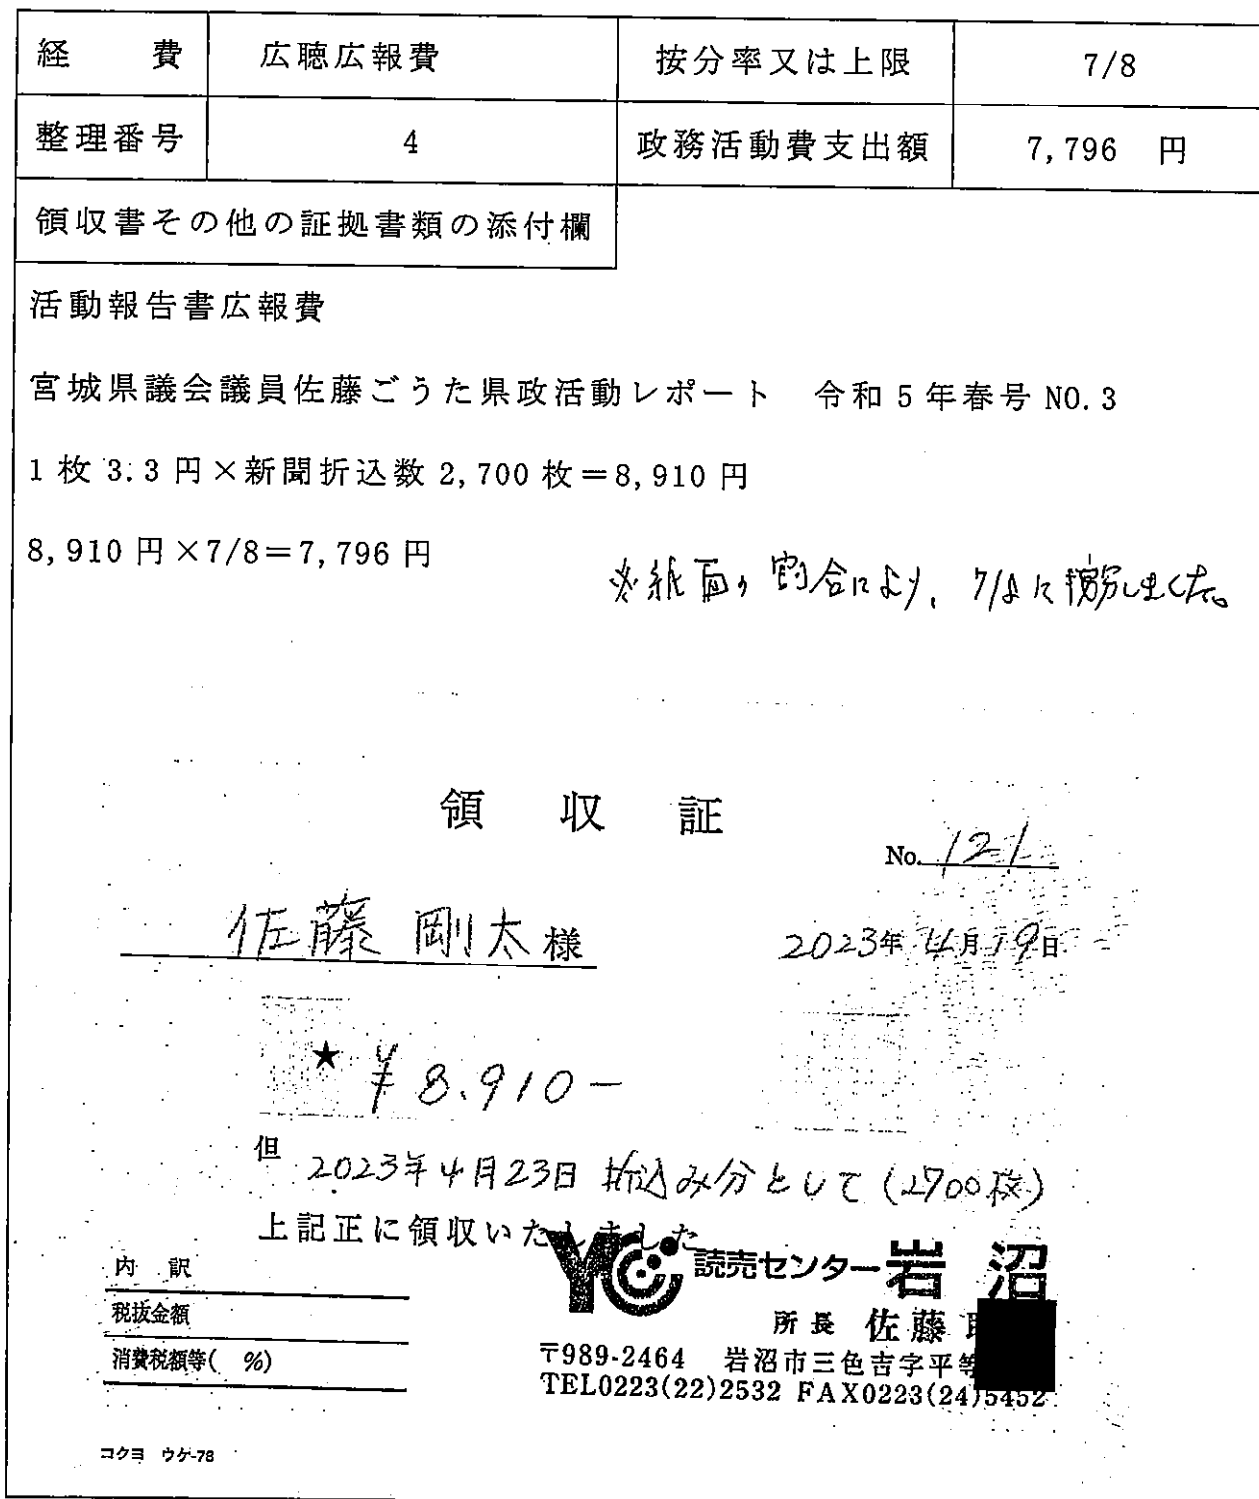 経 費 広聴広報費 按分率又は上限 7/8
整理番号 4 政務活動費支出額 7,796 円
領収書その他の証拠書類の添付欄
活動報告書広報費
宮城県議会議員佐藤ごうた県政活動レポート 令和5年春号 NO.3
1枚 3.3 円×新聞折込数 2,700 枚=8,910 円
8,910 円×7/8=7,796 円
※紙面の割合により、7/8に按分しました。
領 収 証
No. 121
佐藤 剛太 様
2023年 4月 19日
★ ¥8.910-
但 2023年4月23日 折込み分として(2700枚)
上記正に領収いたしました
YC 読売センター岩 沼
内 訳
税抜金額
消費税額等( %)
所長 佐藤
〒989-2464 岩沼市三色吉字平等
TEL0223(22)2532 FAX0223(24)5452
コクヨ ウケ-78